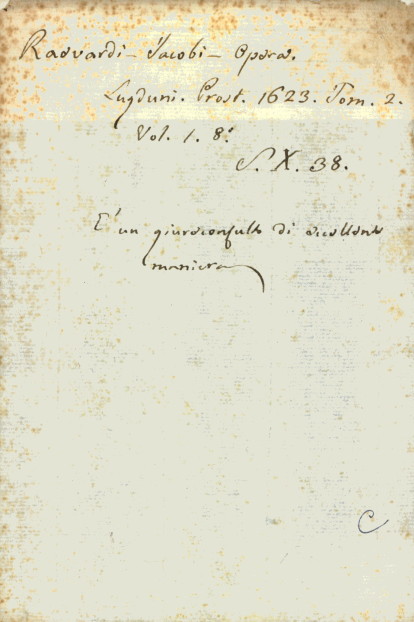 Raevardi - Jacobi - Opera.
Lugduni. Prost. 1623. Tom. 2.
Vol. 1. 8.º
S. X. 38.
E' un giureconsulto di eccellente
maniera
C